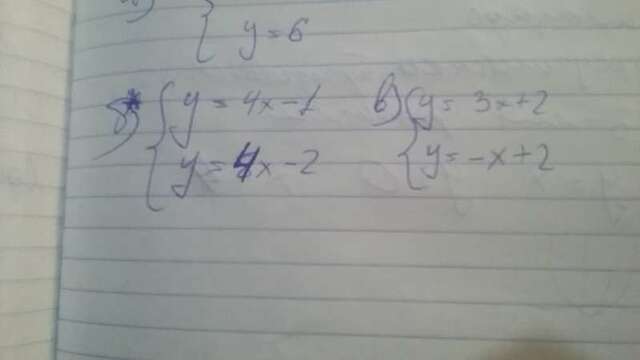 { y = 6
б) { y = 4x - 1
y = 4x - 2
в) { y = 3x + 2
y = -x + 2